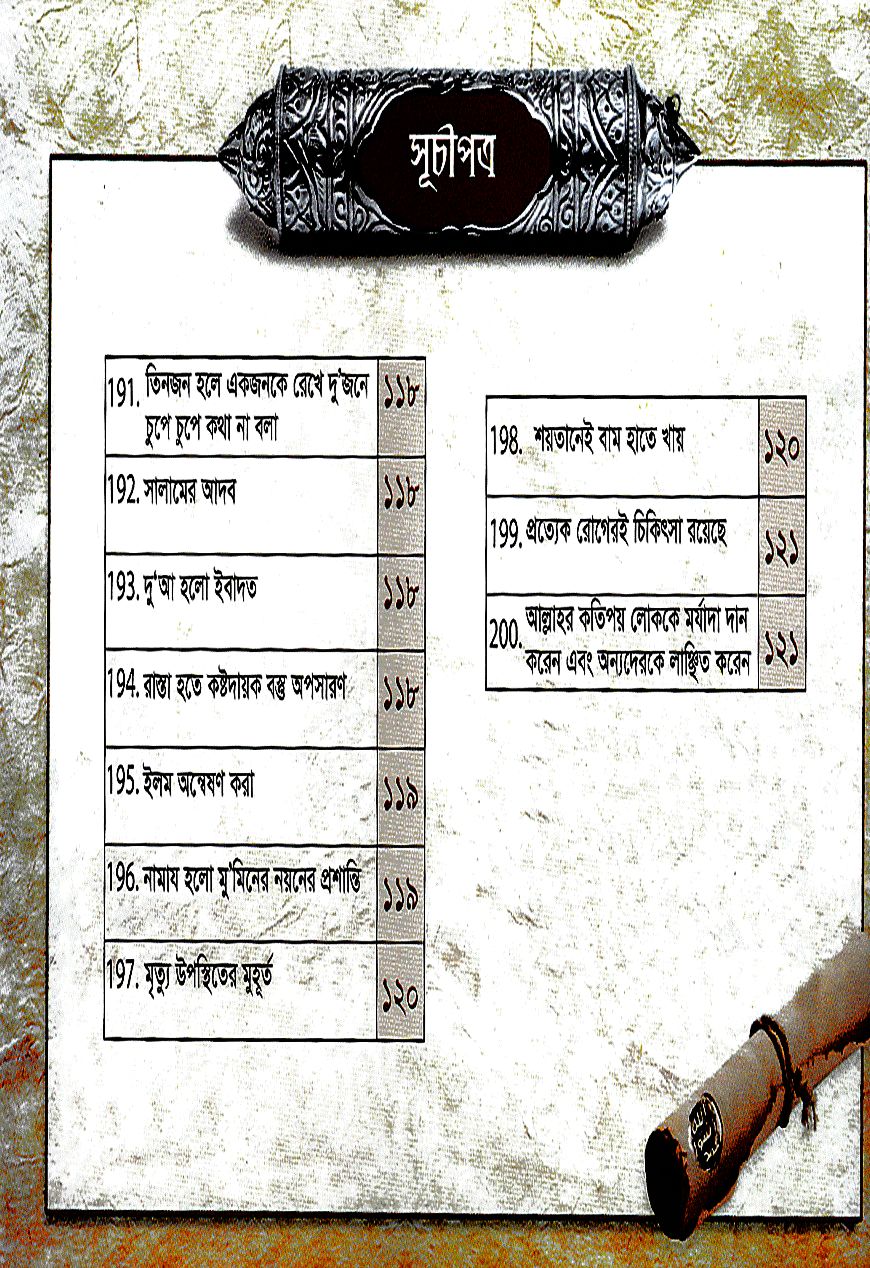 সূচীপত্র
191. তিনজন হলে একজনকে রেখে দু'জনে ১১৮
চুপে চুপে কথা না বলা
192. সালামের আদব ১১৮
193. দু'আ হলো ইবাদত ১১৮
194. রাস্তা হতে কষ্টদায়ক বস্তু অপসারণ ১১৮
195. ইলম অন্বেষণ করা ১১৯
196. নামায হলো মু'মিনের নয়নের প্রশান্তি ১১৯
197. মৃত্যু উপস্থিতের মুহূর্ত ১২০
198. শয়তানেই বাম হাতে খায় ১২০
199. প্রত্যেক রোগেরই চিকিৎসা রয়েছে ১২১
200. আল্লাহর কতিপয় লোককে মর্যাদা দান ১২১
করেন এবং অন্যদেরকে লাঞ্ছিত করেন